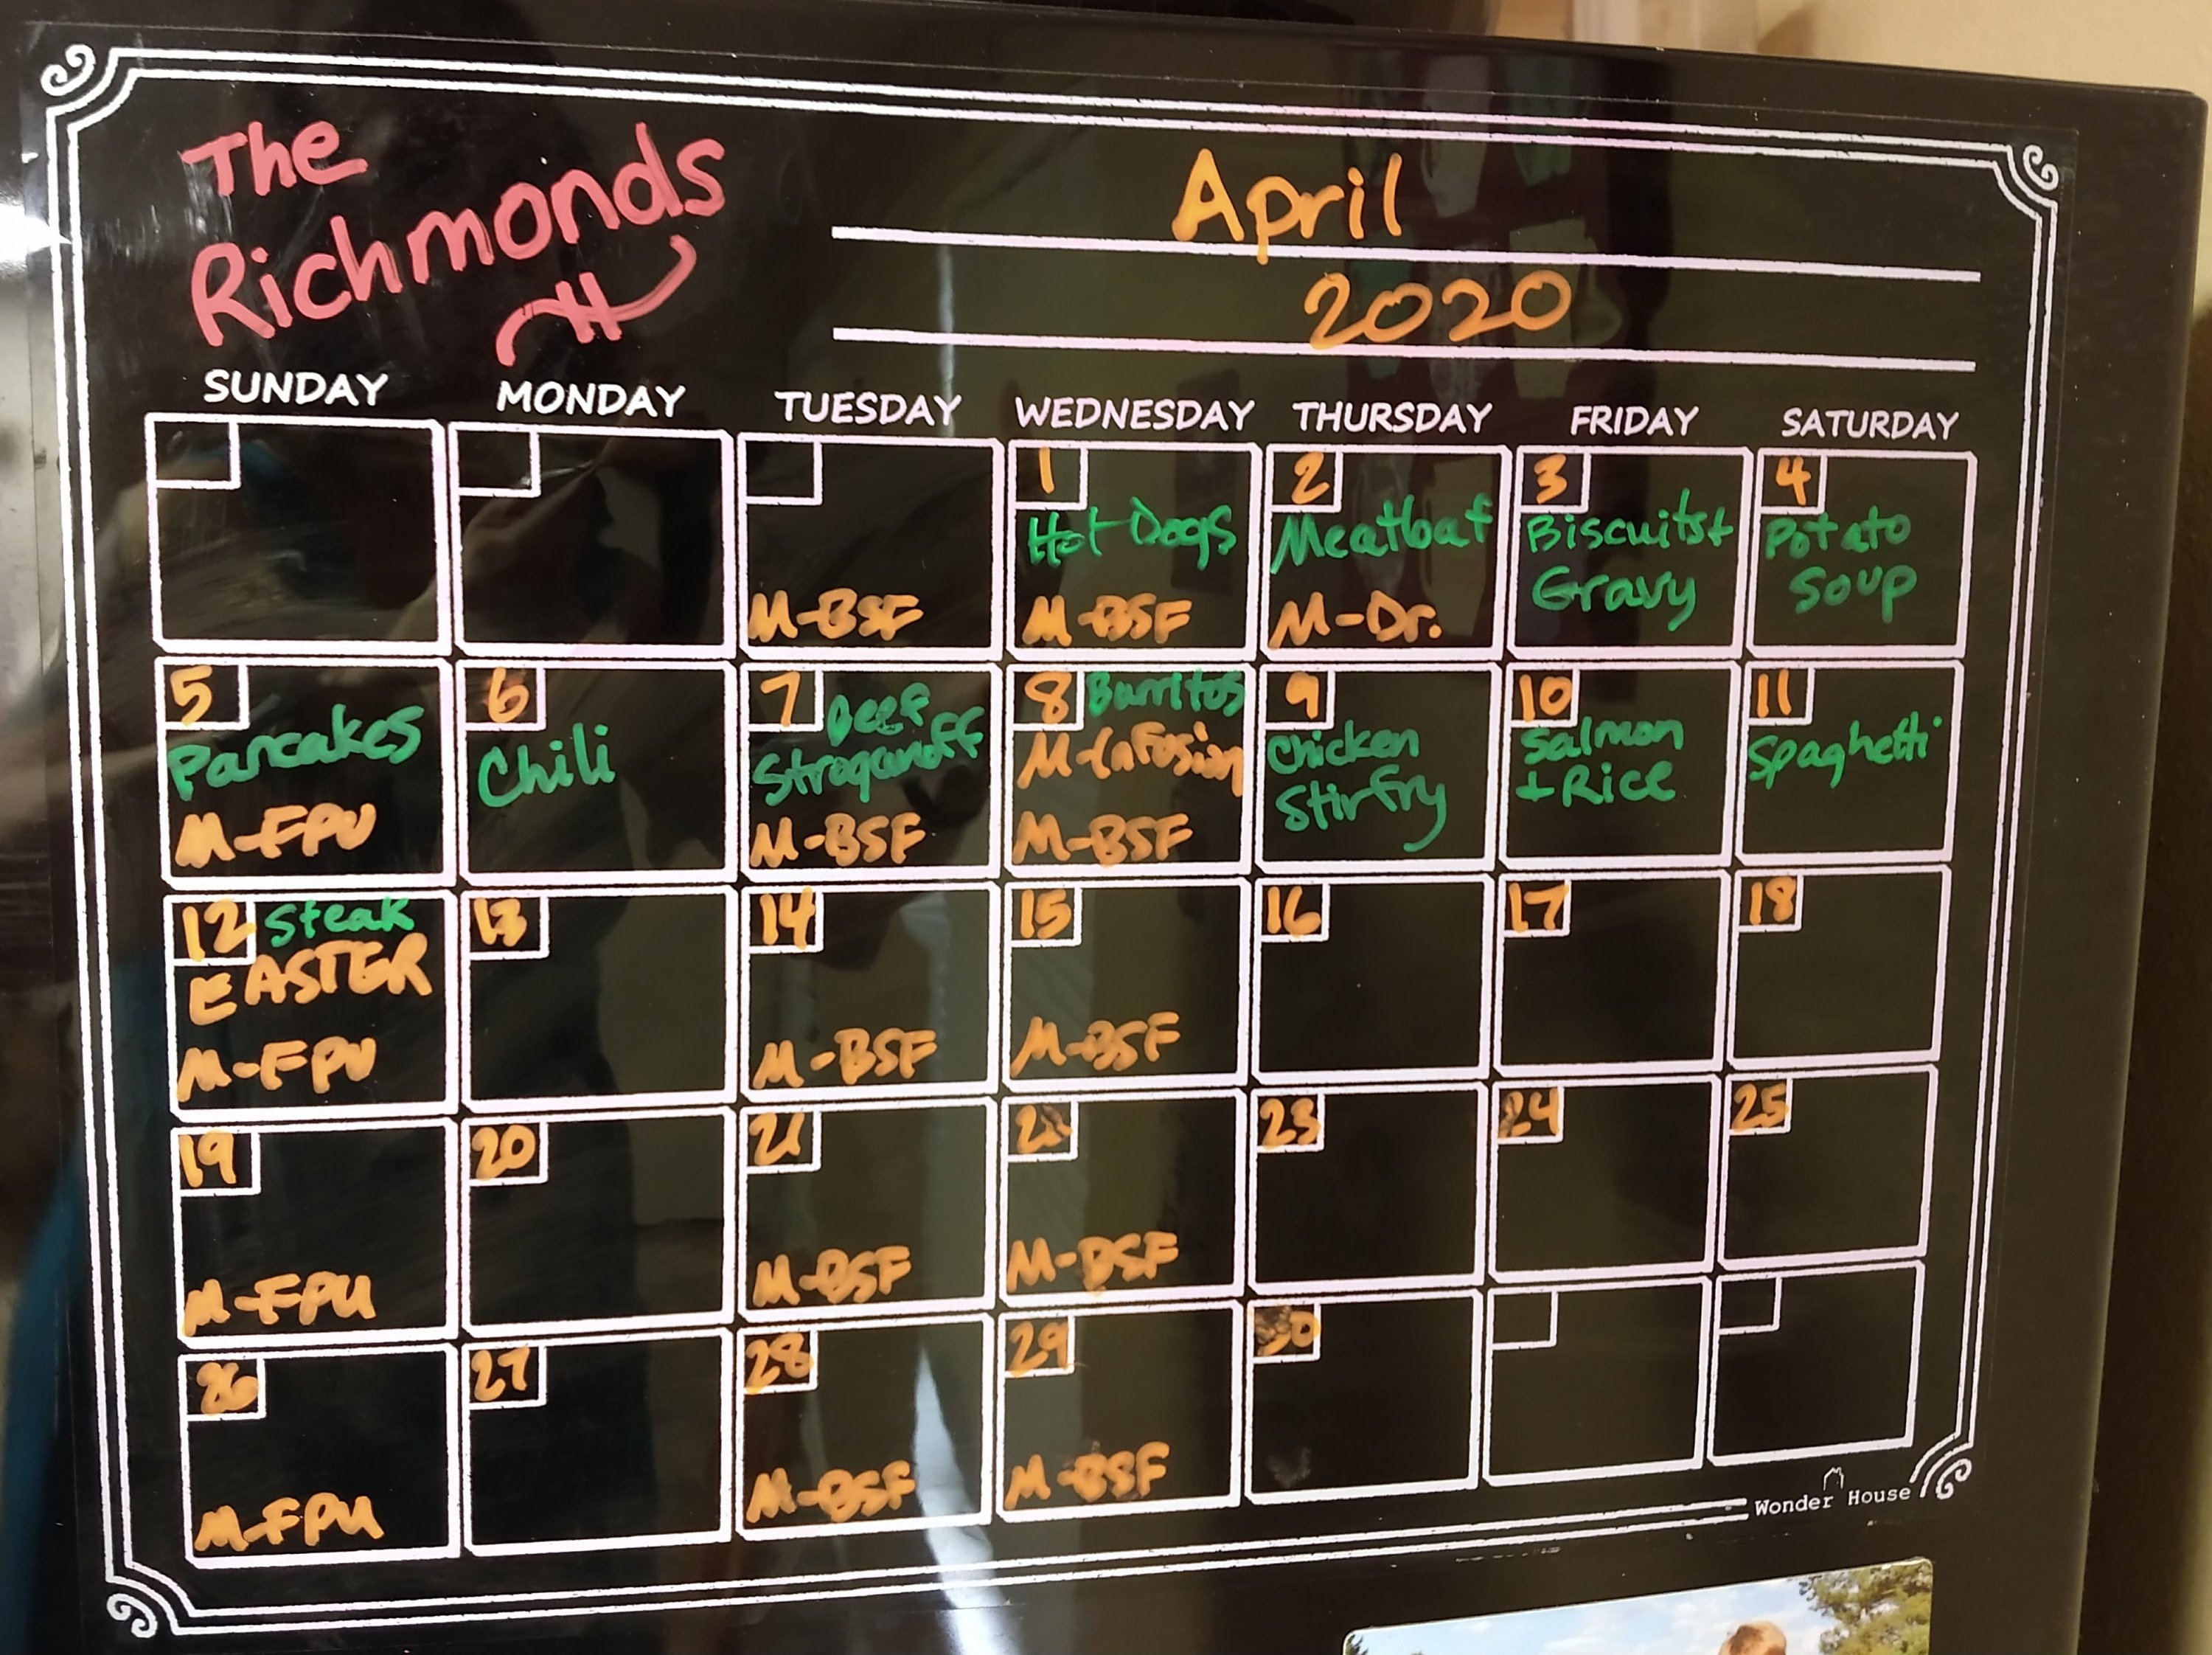 The
Richmonds
April
2020
SUNDAY MONDAY TUESDAY WEDNESDAY THURSDAY FRIDAY SATURDAY
M-BSF
1
Hot Dogs
M-BSF
2
Meatloaf
M-Dr.
3
Biscuits+
Gravy
4
Potato
Soup
5
Pancakes
M-FPU
6
Chili
7 Beef
Stroganoff
M-BSF
8 Burritos
M-Infusion
M-BSF
9
Chicken
Stirfry
10
Salmon
+ Rice
11
Spaghetti
12 Steak
EASTER
M-FPU
13
14
M-BSF
15
M-BSF
16
17
18
19
M-FPU
20
21
M-BSF
22
M-BSF
23
24
25
26
M-FPU
27
28
M-BSF
29
M-BSF
30
Wonder House